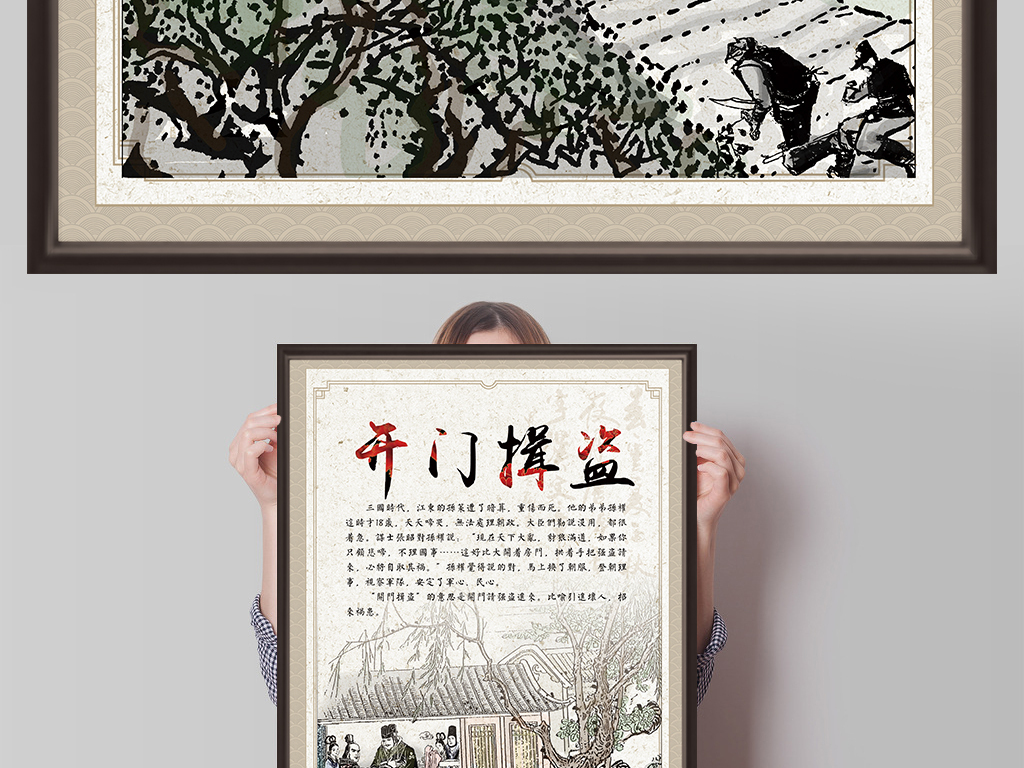 开门揖盗
三國時代，江東的孫策遭了暗算，重傷而死。他的弟弟孫權
這時才18歲，天天啼哭，無法處理朝政。大臣們勸說沒用，都很
着急。謀士張昭對孫權說：“現在天下大亂，豺狼滿道，如果你
只顧悲啼，不理國事……這好比大開着房門，拱着手把强盜請
來，必將自取其禍。”孫權覺得說的對，馬上換了朝服，登朝理
事，視察軍隊，安定了軍心、民心。
“開門揖盜”的意思是開門請强盜進來。比喻引進壞人，招
來禍患。